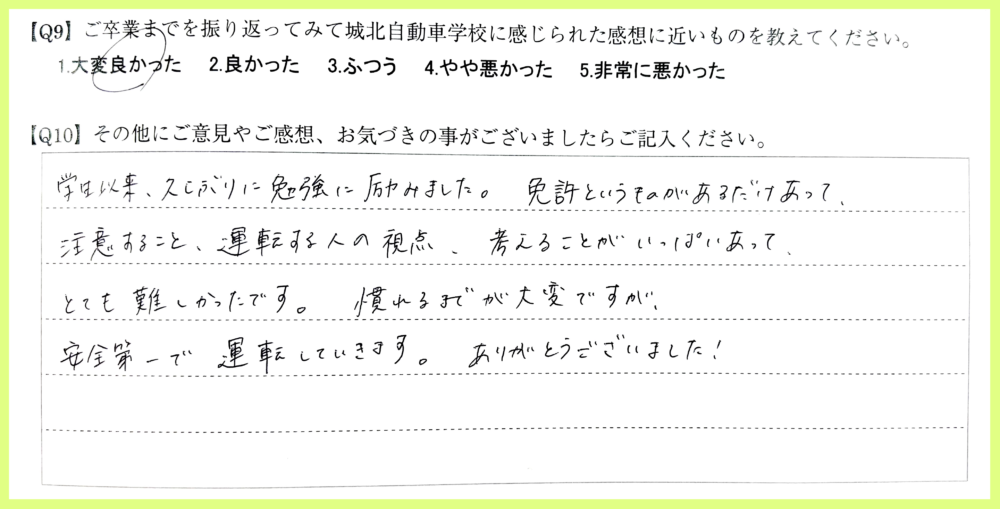 【Q9】ご卒業までを振り返ってみて城北自動車学校に感じられた感想に近いものを教えてください。
1.大変良かった 2.良かった 3.ふつう 4.やや悪かった 5.非常に悪かった
【Q10】その他にご意見やご感想、お気づきの事がございましたらご記入ください。
学生以来、久しぶりに勉強に励みました。 免許というものがあるだけあって、
注意すること、運転する人の視点、考えることがいっぱいあって、
とても難しかったです。 慣れるまでが大変ですが、
安全第一で運転していきます。 ありがとうございました!